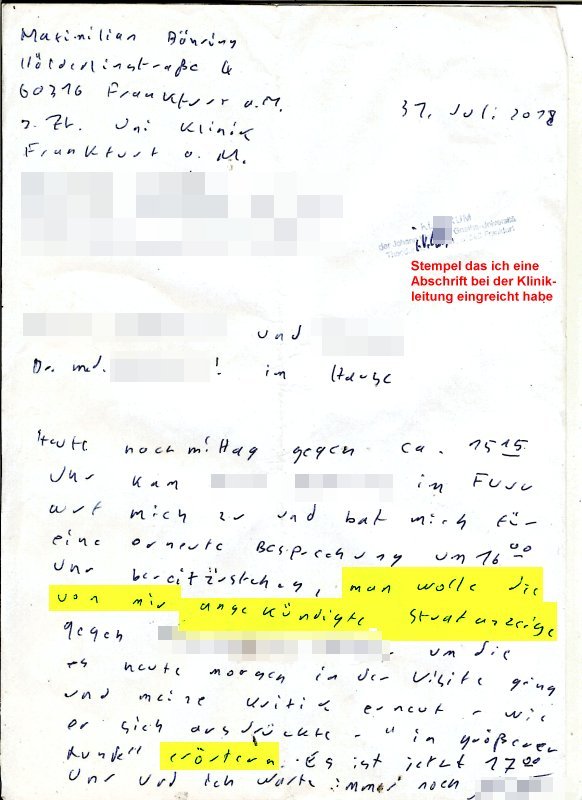 Maximilian Bähring
Hölderlinstraße 4
60316 Frankfurt a.M.
z. Zt. Uni Klinik
Frankfurt a. M.
31. Juli 2018
der Johann Goethe-Universität
Stempel das ich eine
Abschrift bei der Klinik-
leitung eingreicht habe
und
Dr. med. ! im Hause
Heute nachmittag gegen ca. 15 15
Uhr kam im Flur
auf mich zu und bat mich für
eine erneute Besprechung um 16 00
Uhr bereitzustehen, man wolle die
von mir angekündigte Strafanzeige
gegen um die
es heute morgen in der Visite ging
und meine Kritik erneut - wie
er sich ausdrückte - "in größerer
Runde" erörtern. Es ist jetzt 17 00
Uhr und ich warte immer noch